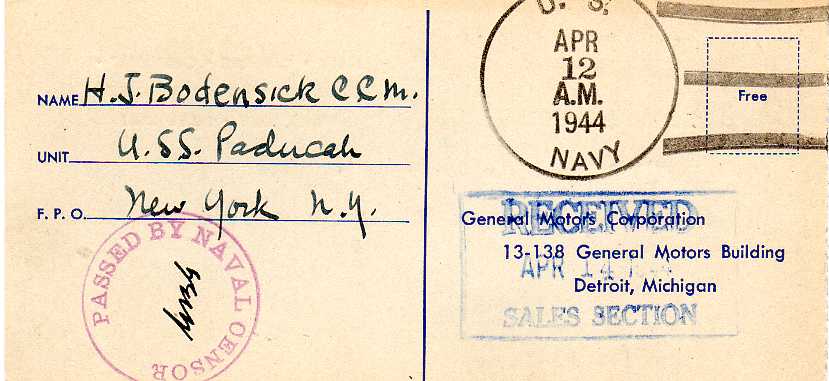 NAME H. J. Bodensick C C M.
UNIT U.S.S. Paducah
F. P. O. New York N.Y.
PASSED BY NAVAL CENSOR
U. S.
APR
12
A.M.
1944
NAVY
Free
RECEIVED
APR 14
SALES SECTION
General Motors Corporation
13-138 General Motors Building
Detroit, Michigan